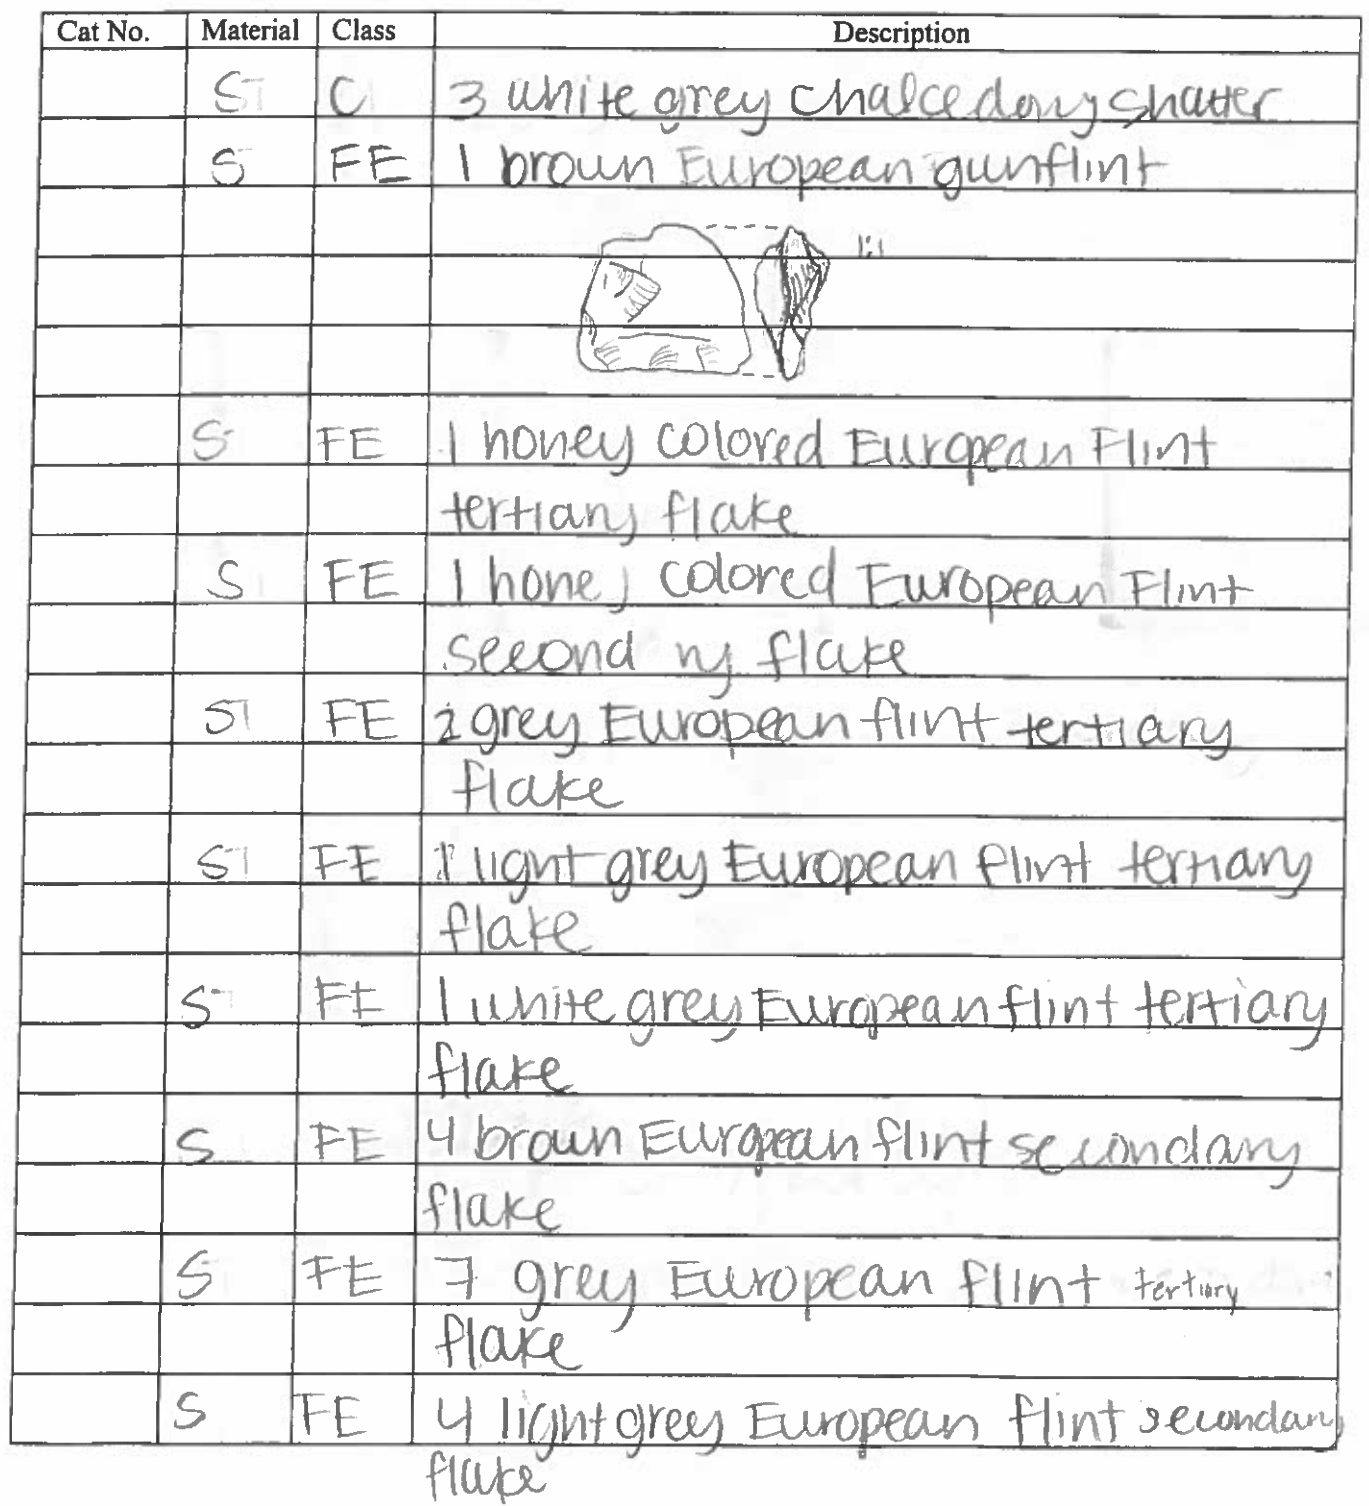 Cat No. Material Class Description
ST C 3 white grey chalcedony shatter
S FE 1 brown European gunflint
1:1
S FE 1 honey colored European Flint
tertiary flake
S FE 1 honey colored European Flint
secondary flake
ST FE 2 grey European flint tertiary
flake
ST FE 1 light grey European flint tertiary
flake
S FE 1 white grey European flint tertiary
flake
S FE 4 brown European flint secondary
flake
S FE 7 grey European flint tertiary
flake
S FE 4 light grey European flint secondary
flake